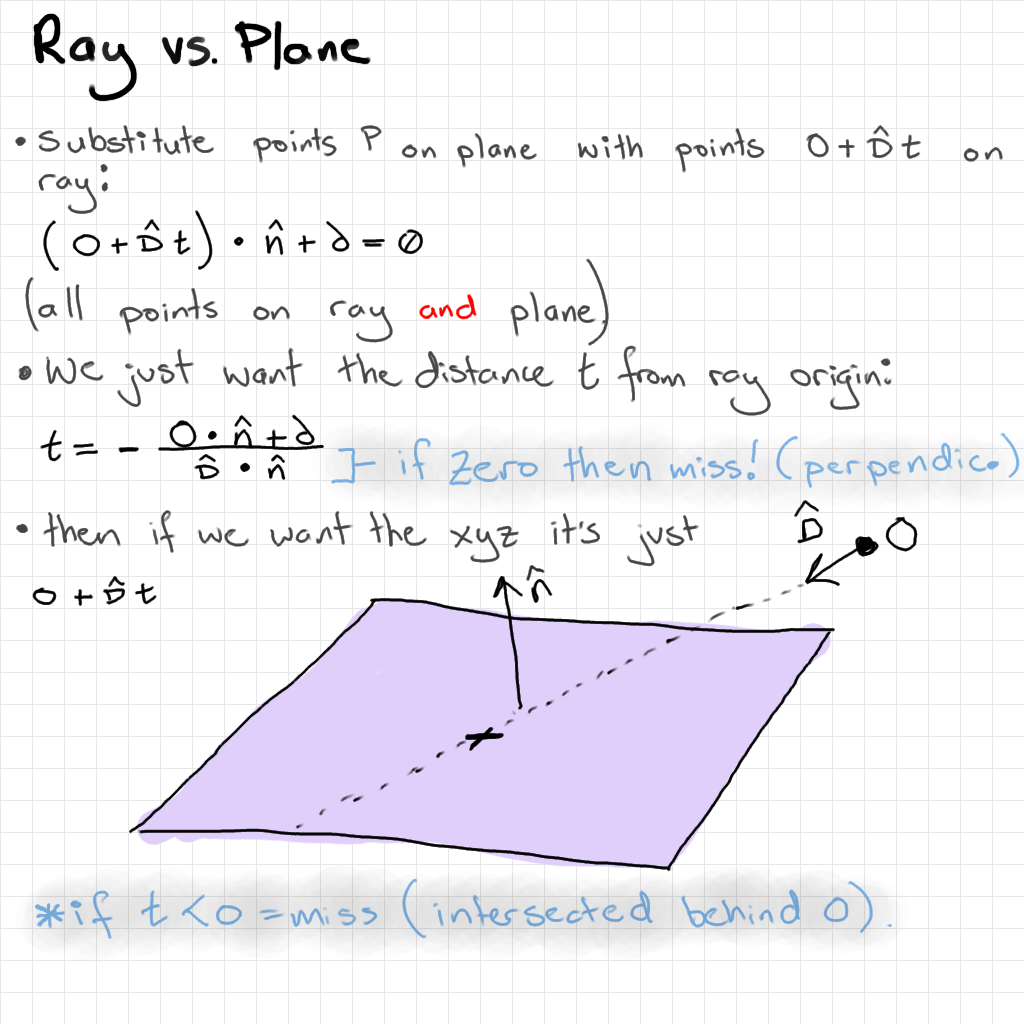 Ray vs. Plane
• Substitute points P on plane with points O + D̂ t on
ray:
(O + D̂ t) • n̂ + d = 0
(all points on ray and plane)
• We just want the distance t from ray origin:
t = - O • n̂ + d / D̂ • n̂ ]- if zero then miss! (perpendic.)
• then if we want the xyz it's just
O + D̂ t
D̂ O
n̂
*if t < 0 = miss (intersected behind O).